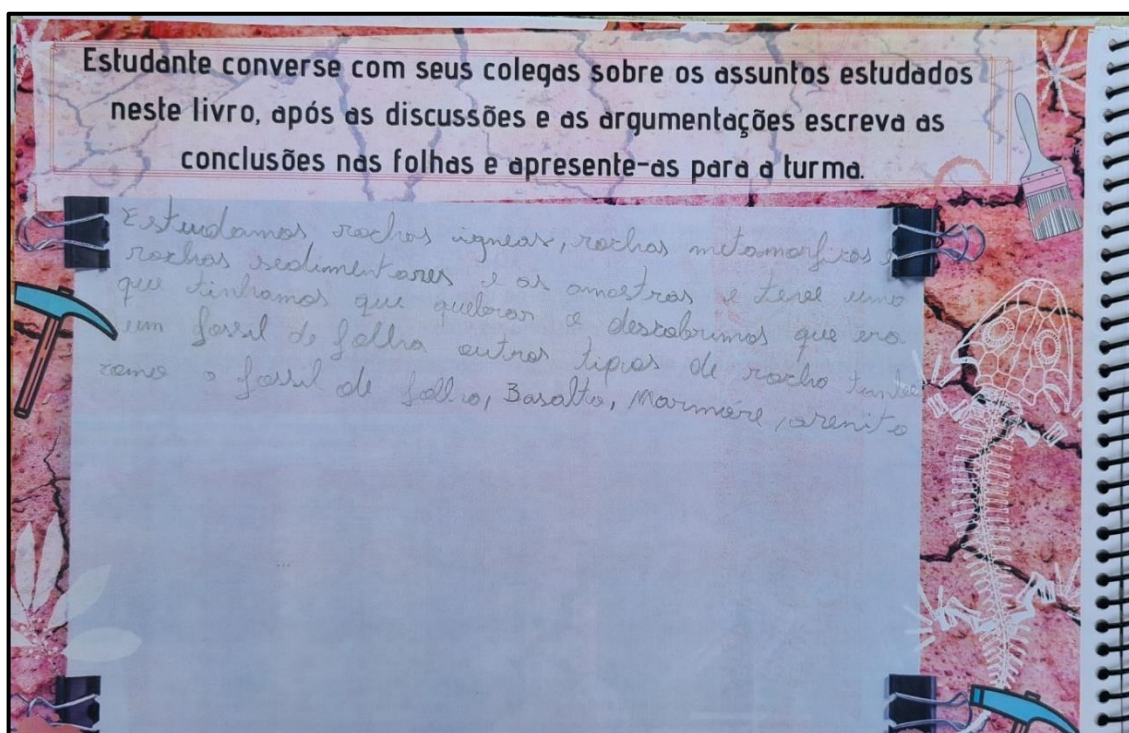 Estudante converse com seus colegas sobre os assuntos estudados
neste livro, após as discussões e as argumentações escreva as
conclusões nas folhas e apresente-as para a turma.
Estudamos rochas igneas, rochas metamorficas e
rochas sedimentares e as amostras e teve uma
que tinhamos que quebrar e descobrimos que era
um fossil de folha outros tipos de rocha
como o fossil de folha, Basalto, Marmore, arenito